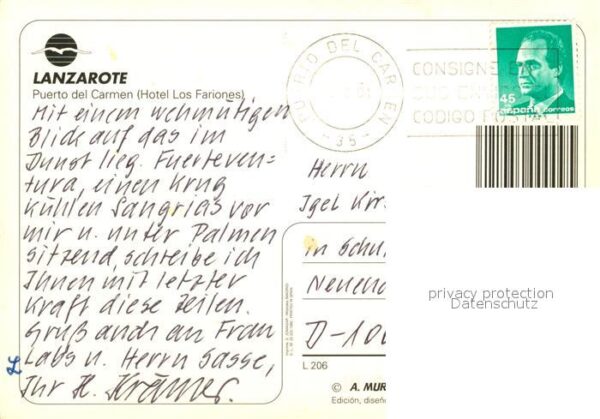 LANZAROTE
Puerto del Carmen (Hotel Los Fariones)
Mit einem wehmütigen
Blick auf das im
Dunst lieg. Fuerteven-
tura, einen Krug
kühlen Sangrias vor
mir u. unter Palmen
sitzend, schreibe ich
Ihnen mit letzter
Kraft diese Zeilen.
Gruß auch an Frau
Labs u. Herrn Sasse,
Ihr H. Krämer.
PUERTO DEL CARMEN
-35-
CONSIGNE
CODIGO POSTAL
45
españa correos
Herrn
Igel
In
D-100
privacy protection
Datenschutz
L 206
© A. MUR
Edición, diseño